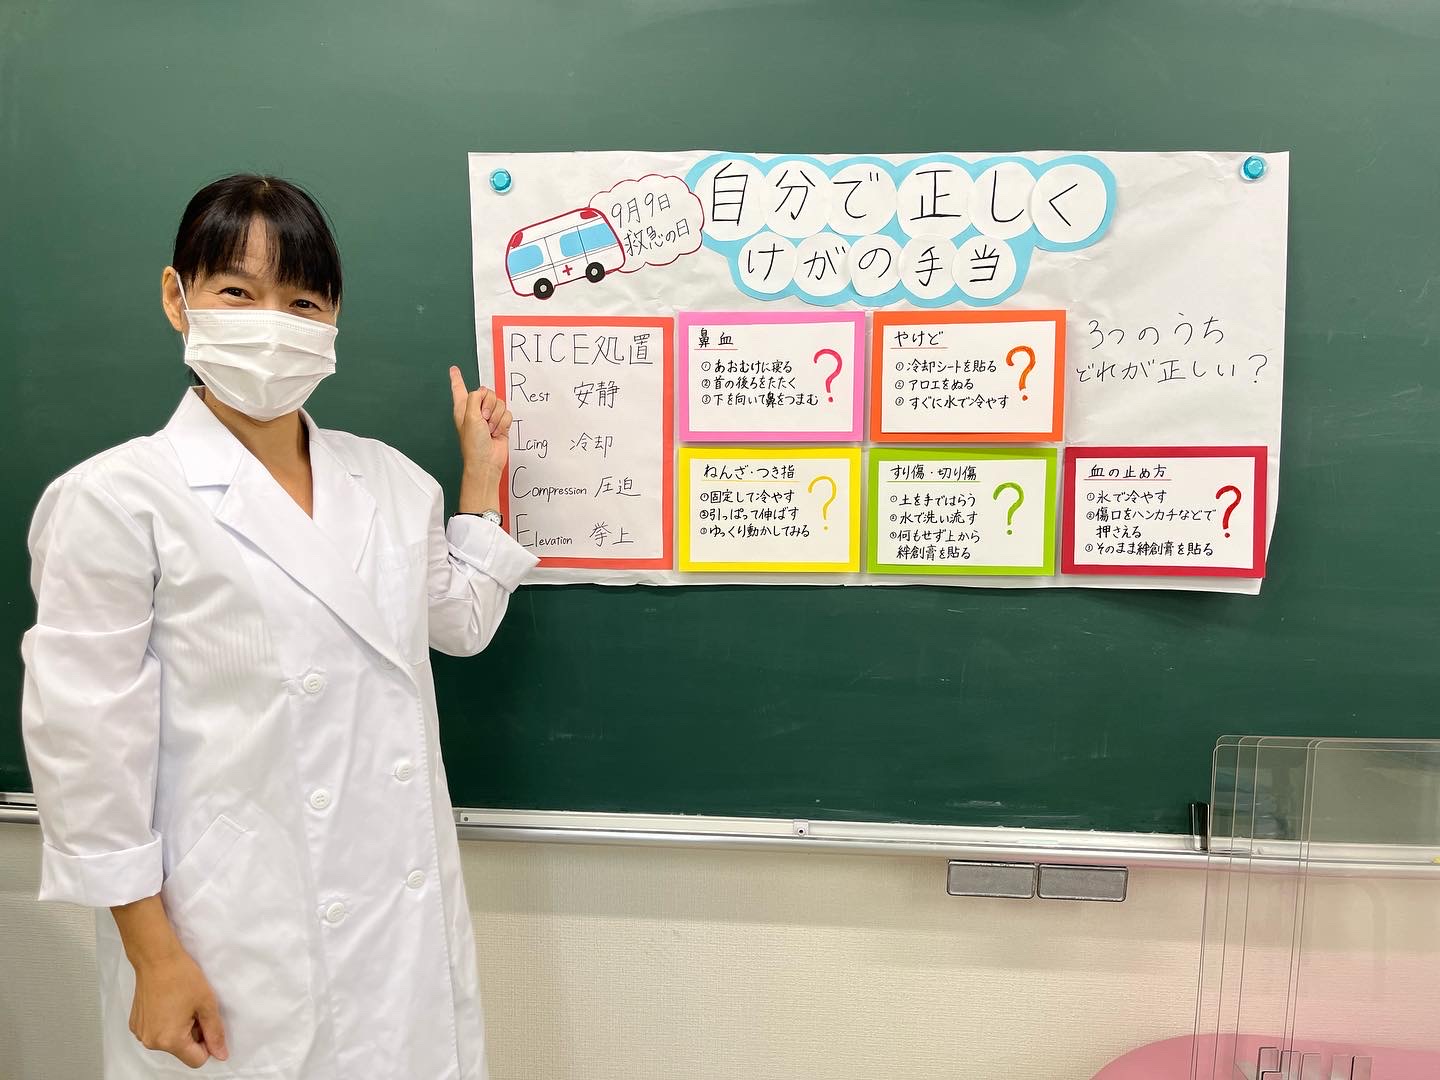 9月9日
救急の日
自分で正しく
けがの手当
RICE処置
Rest 安静
Icing 冷却
Compression 圧迫
Elevation 挙上
鼻血
①あおむけに寝る
②首の後ろをたたく
③下を向いて鼻をつまむ
?
やけど
①冷却シートを貼る
②アロエをぬる
③すぐに水で冷やす
?
3つのうち
どれが正しい?
ねんざ・つき指
①固定して冷やす
②引っぱって伸ばす
③ゆっくり動かしてみる
?
すり傷・切り傷
①土を手ではらう
②水で洗い流す
③何もせず上から
絆創膏を貼る
?
血の止め方
①氷で冷やす
②傷口をハンカチなどで
押さえる
③そのまま絆創膏を貼る
?